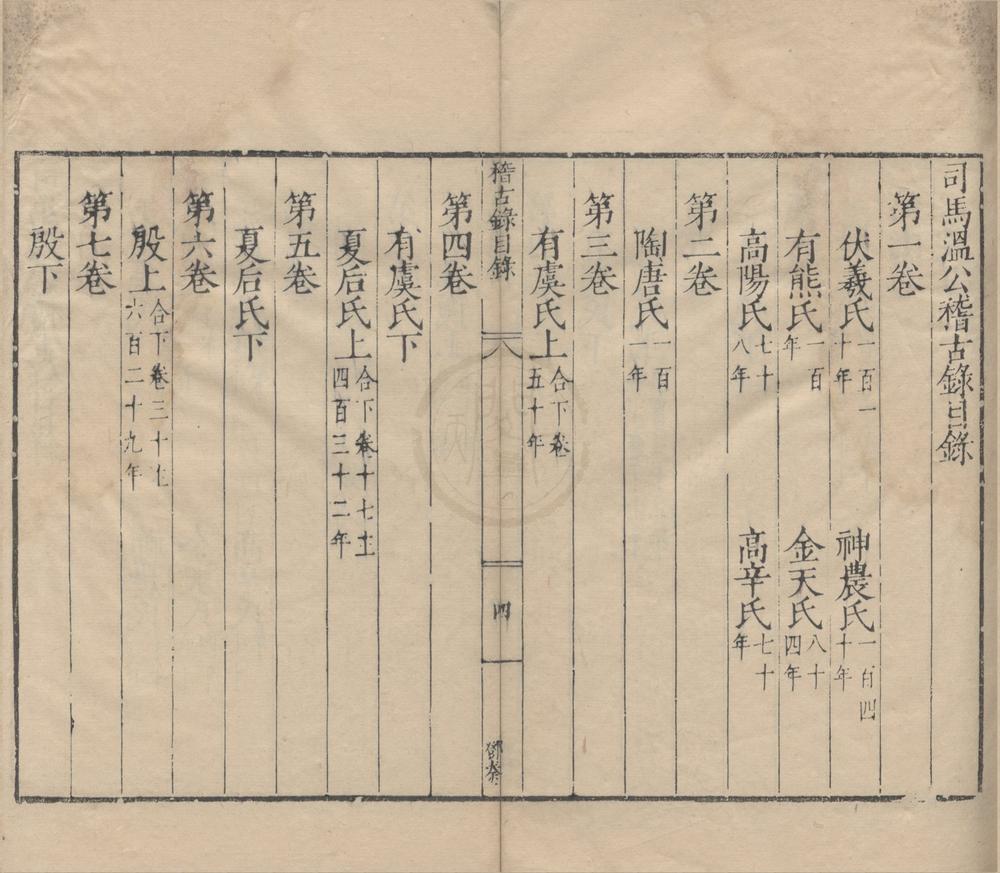 司馬溫公稽古錄目錄
第一卷
伏羲氏一百一十年 神農氏一百四十年
有熊氏一百年 金天氏八十四年
高陽氏七十八年 高辛氏七十年
第二卷
陶唐氏一百一年
第三卷
有虞氏上合下卷五十年
稽古錄目錄 四
第四卷
有虞氏下
夏后氏上合下卷十七主四百三十二年
第五卷
夏后氏下
第六卷
殷上合下卷三十主六百二十九年
第七卷
殷下